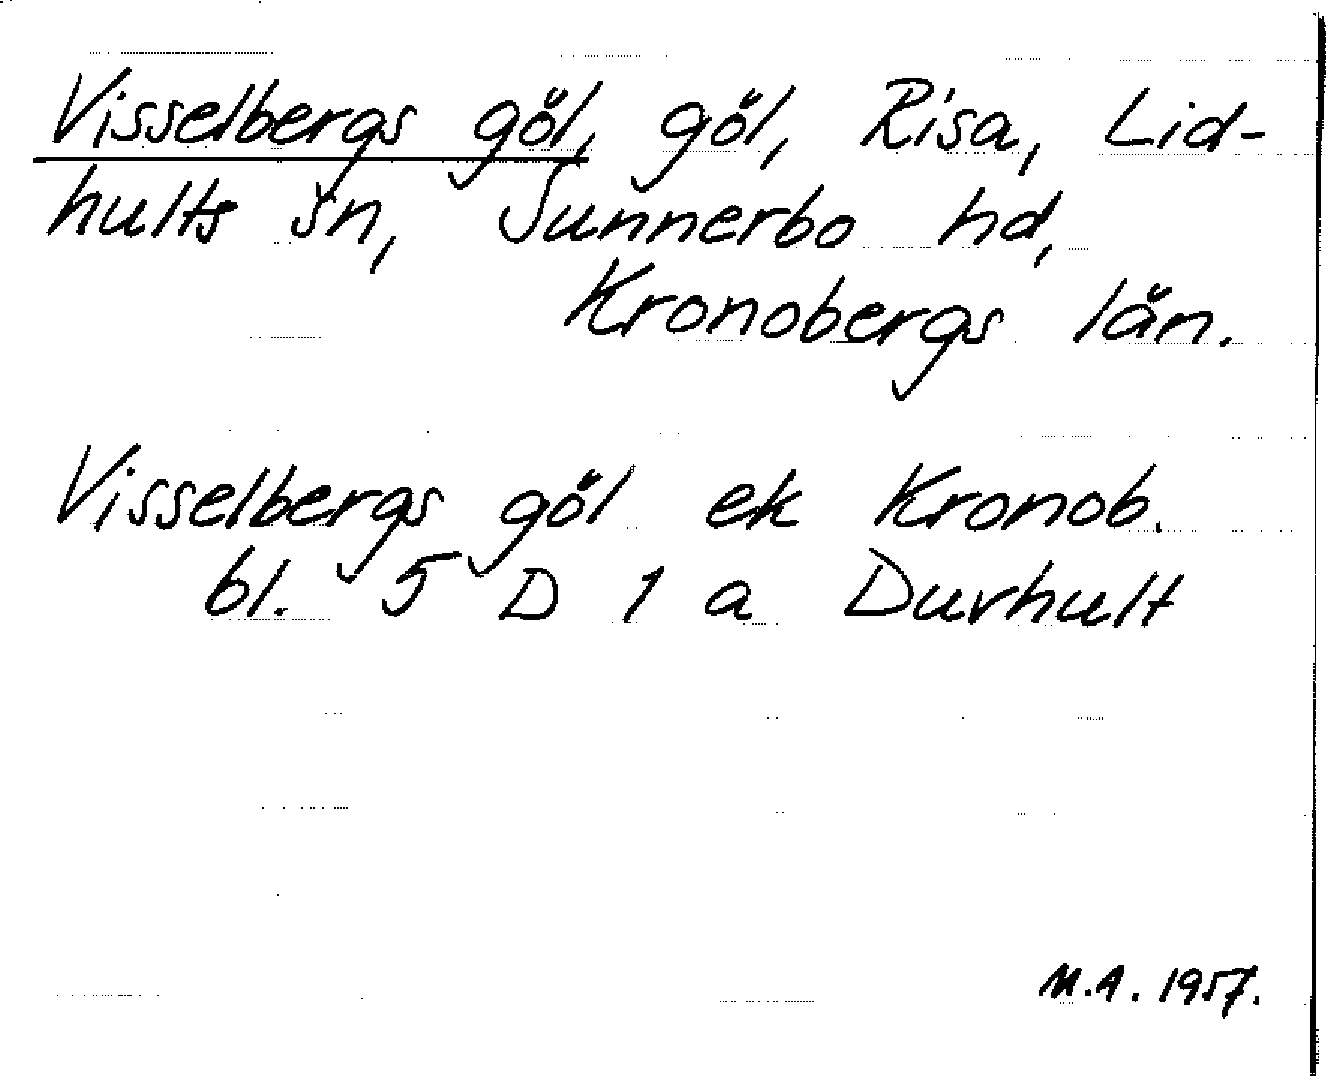 Visselbergs göl, göl, Risa, Lid-
hults sn, Sunnerbo hd,
Kronobergs län.
Visselbergs göl ek Kronob.
bl. 5 D 1 a Duvhult
M.A. 1957.